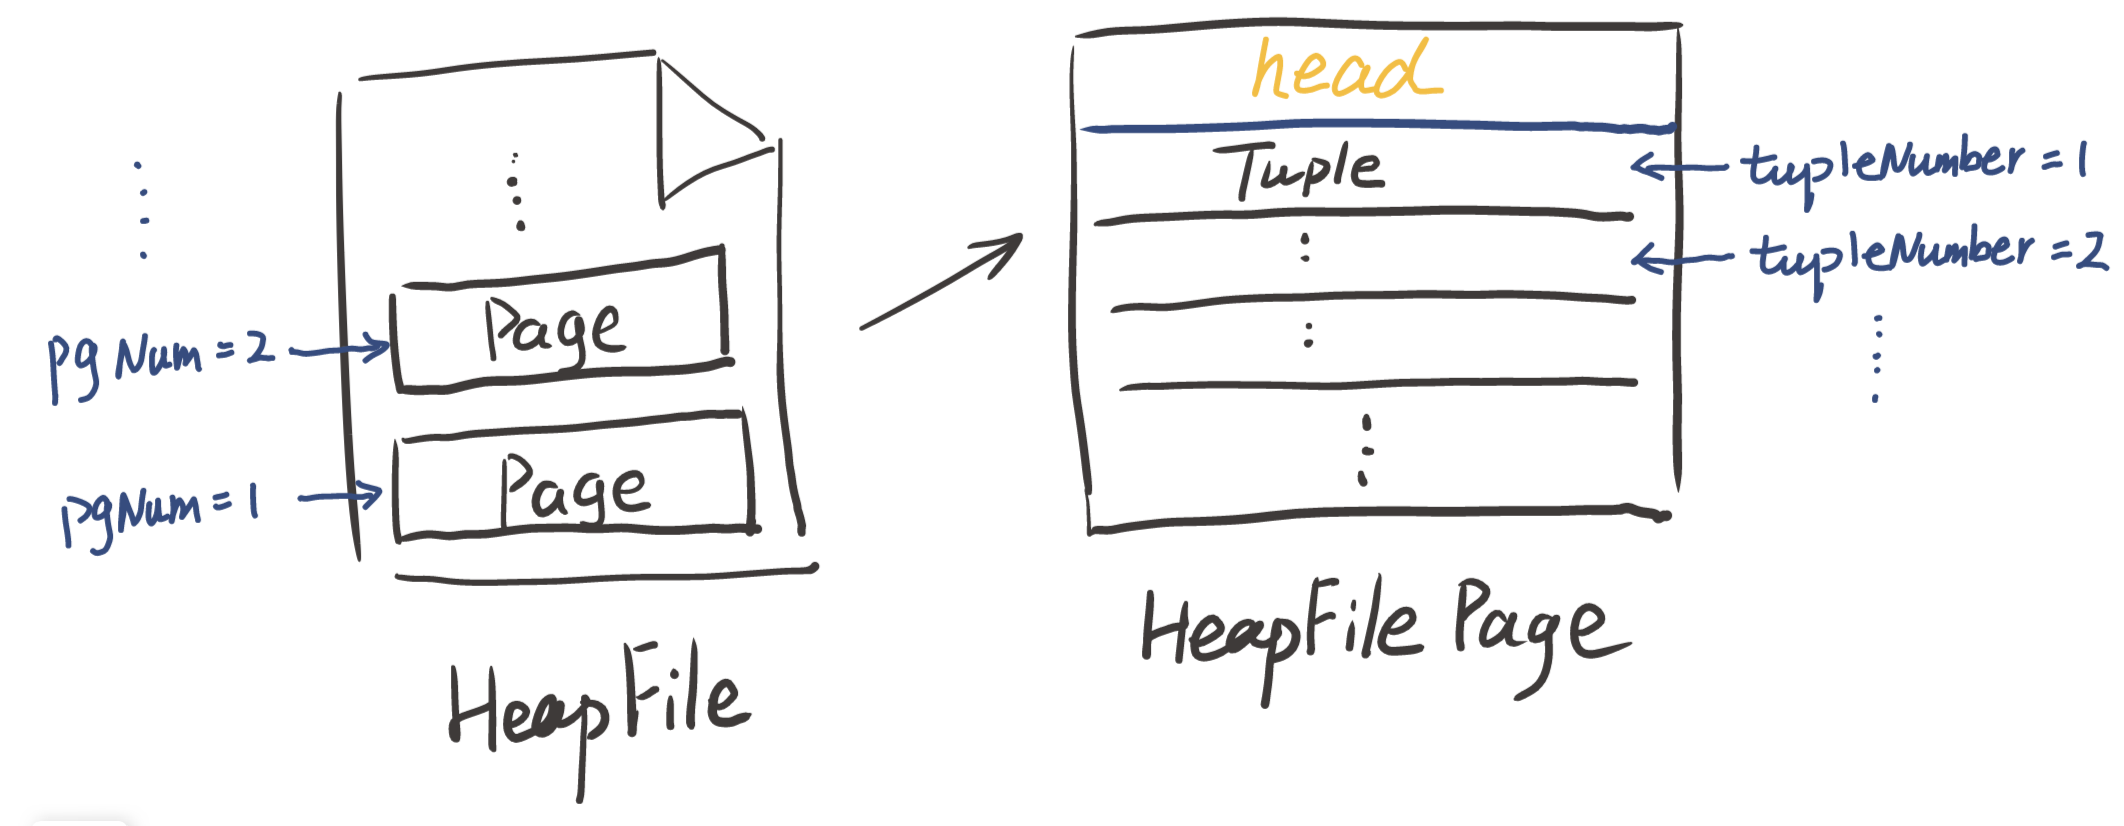 pgNum=2
Page
pgNum=1
Page
HeapFile
head
Tuple
tupleNumber=1
tupleNumber=2
HeapFile Page